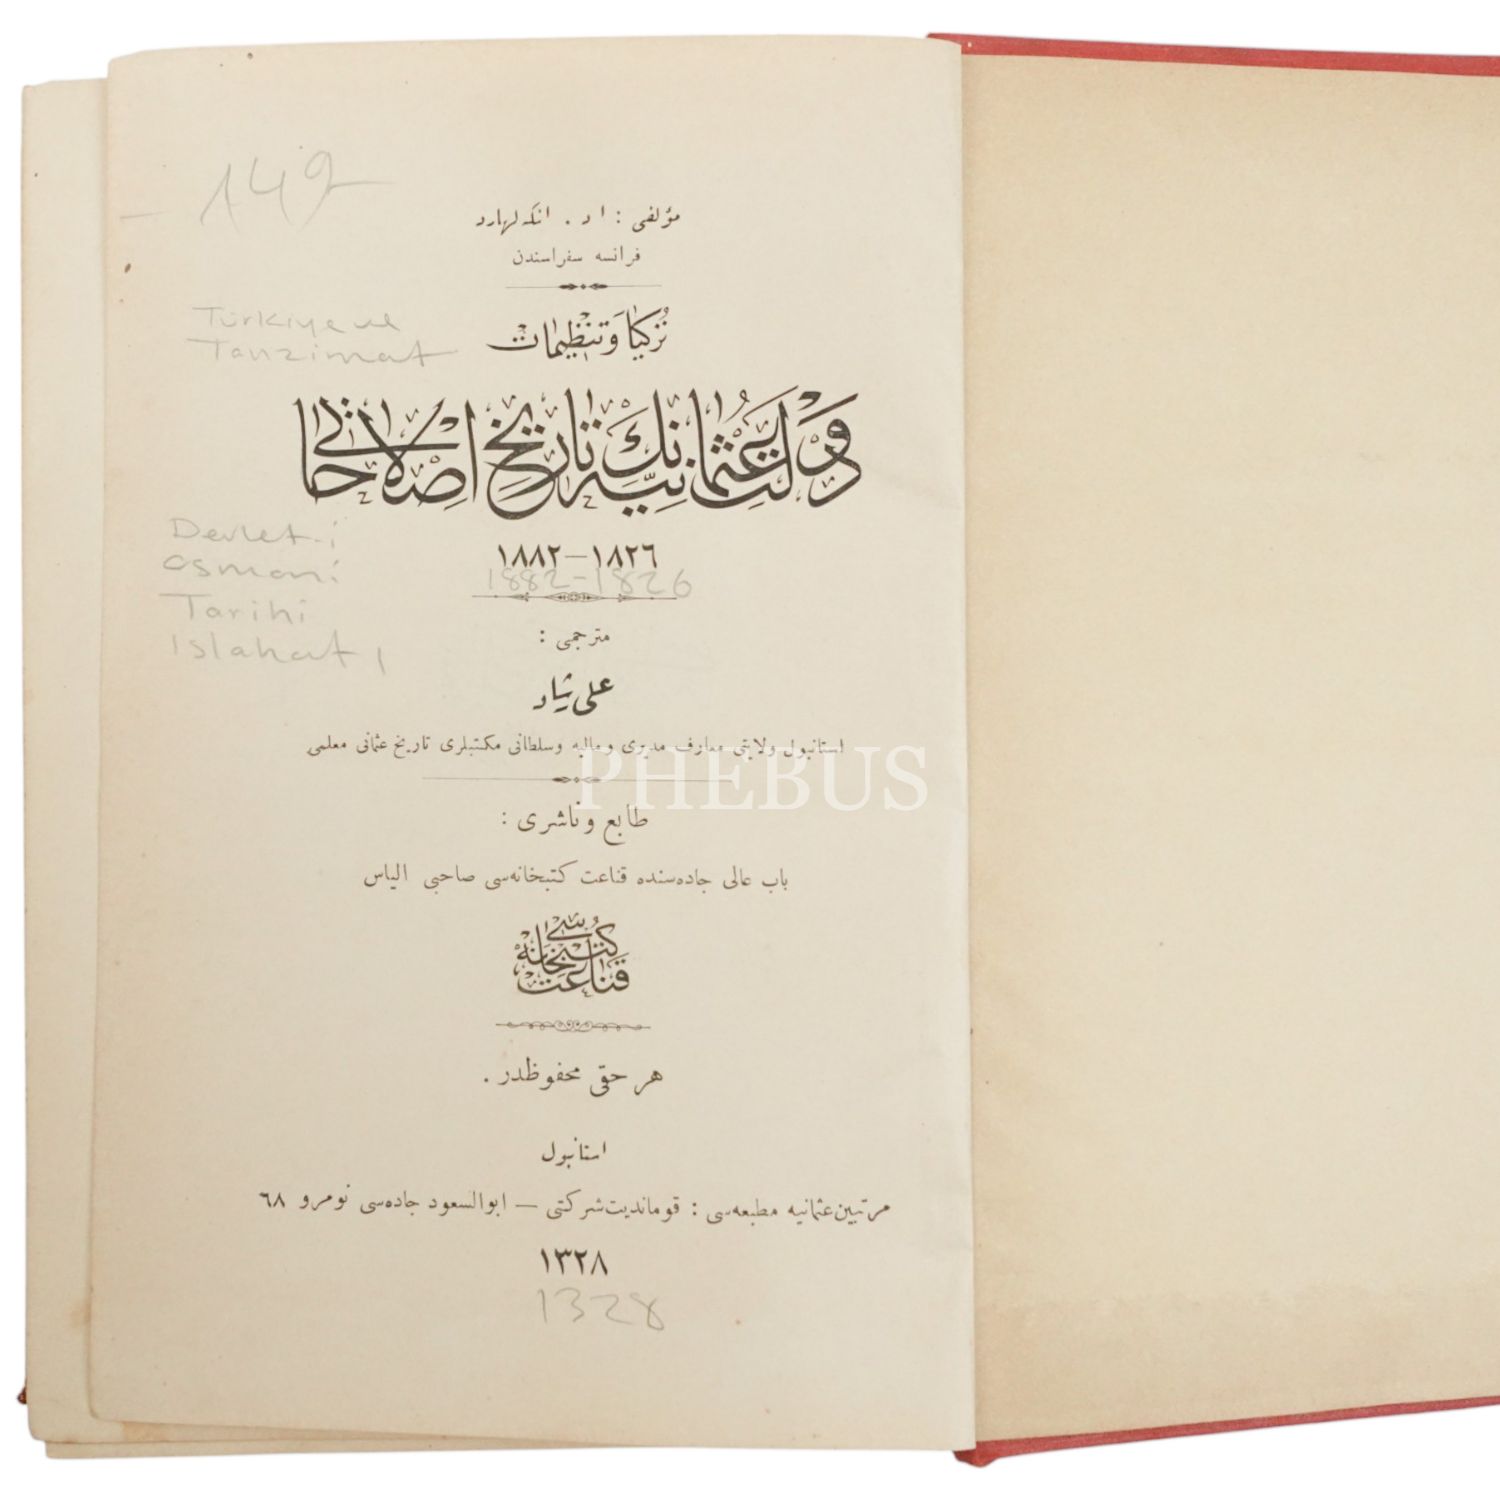 149
مؤلفی : اد . انکه‌لهارد
فرانسه سفراسندن
Türkiye ve
Tanzimat
تركیا و تنظیمات
دولت عثمانیه‌نك تاریخ اصلاحاتی
Devlet-i
osmani
Tarihi
ıslahatı
١٨٢٦—١٨٨٢
1882-1826
مترجمی :
علی رشاد
استانبول ولایتی معارف مدیری و مالیه و سلطانی مکتبلری تاریخ عثمانی معلمی
PHEBUS
طابع و ناشری :
باب عالی جاده‌سنده قناعت کتبخانه‌سی صاحبی الیاس
قناعت کتبخانه‌سی
هر حقی محفوظدر .
استانبول
مرتبین عثمانیه مطبعه‌سی : قوماندیت شرکتی — ابوالسعود جاده‌سی نومرو ٦٨
١٣٢٨
1328